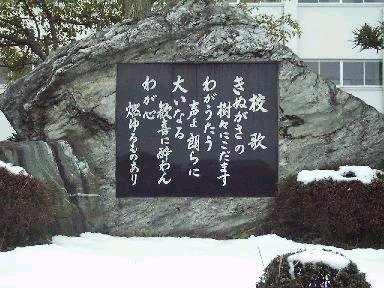 校歌
きぬがさの
樹々にこだます
わがうたう
声よ朗らに
大いなる
歓喜に酔わん
わが心
燃ゆるものあり